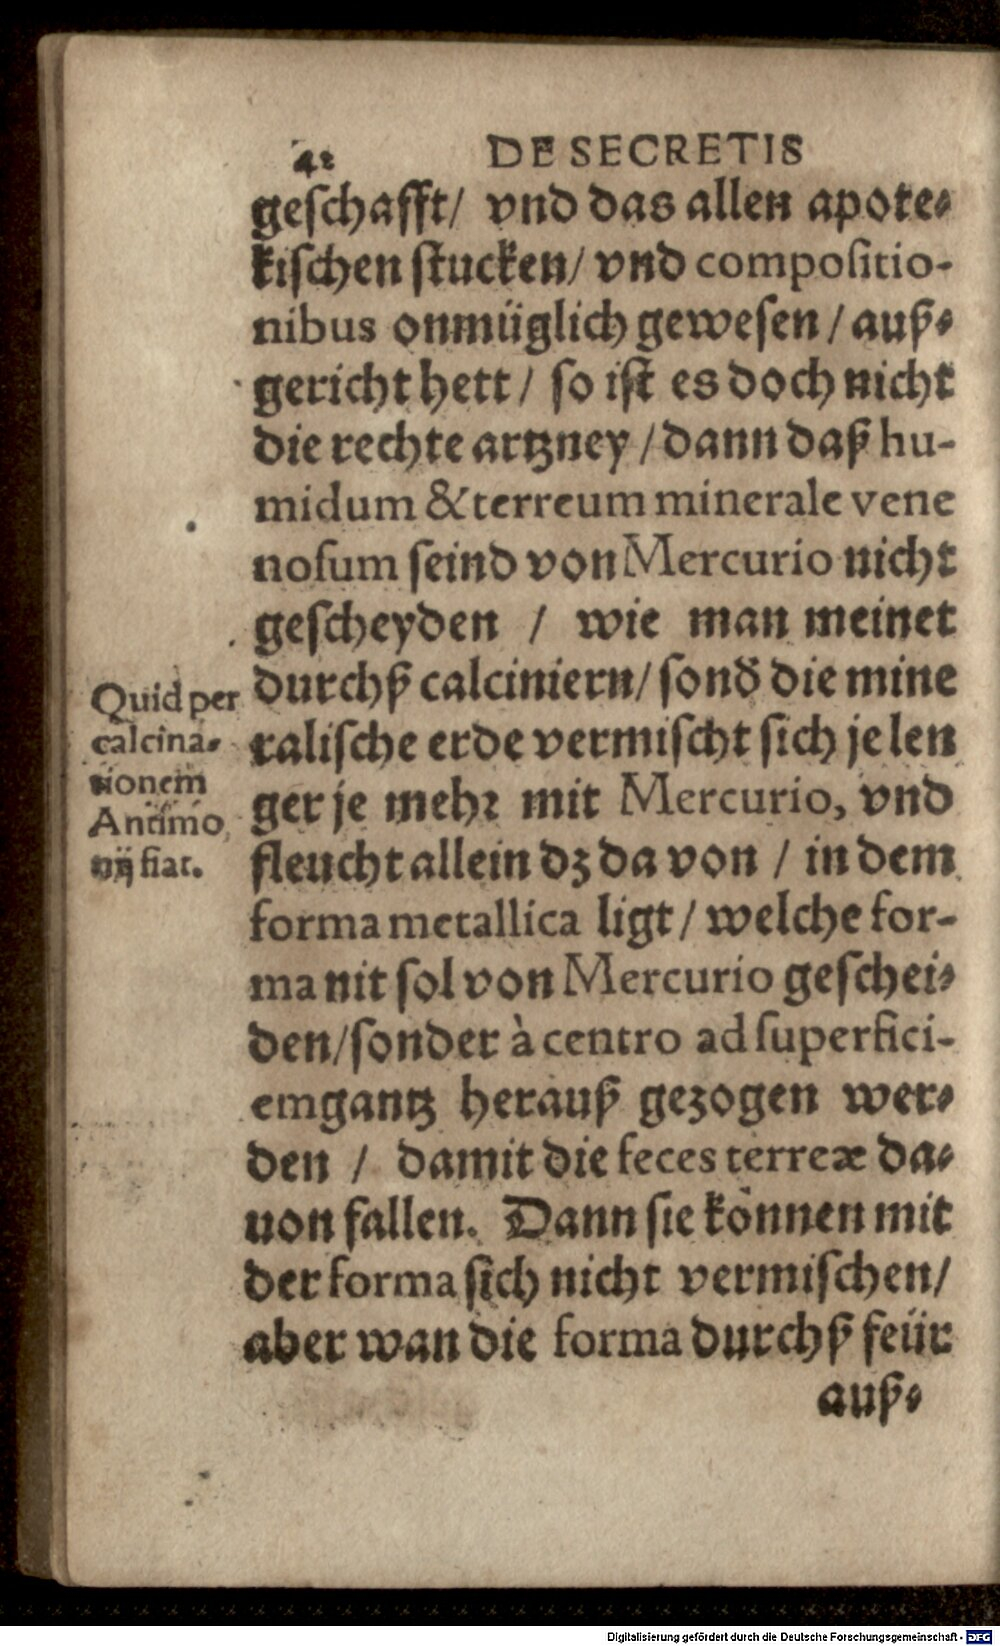 42 DE SECRETIS
geschafft/ vnd das allen apote⸗
kischen stucken/ vnd compositio-
nibus onmüglich gewesen / auß⸗
gericht hett / so ist es doch nicht
die rechte artzney / dann daß hu-
midum & terreum minerale vene
nosum seind von Mercurio nicht
gescheyden / wie man meinet
durchß calciniern/ sond̄ die mine
ralische erde vermischt sich je len
ger je mehr mit Mercurio, vnd
fleucht allein dz da von / in dem
forma metallica ligt / welche for-
ma nit sol von Mercurio geschei⸗
den/ sonder à centro ad superfici-
em gantz herauß gezogen wer⸗
den / damit die feces terreæ da⸗
uon fallen. Dann sie können mit
der forma sich nicht vermischen/
aber wan die forma durchß feür
auß⸗
Quid per
calcina⸗
tionem
Antimo
nij fiat.
Digitalisierung gefördert durch die Deutsche Forschungsgemeinschaft - DFG